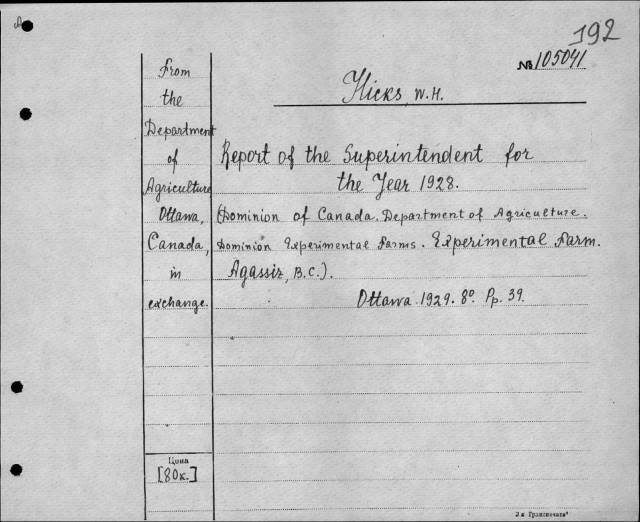 192
№ 105041
Hicks, W.H.
From
the
Department
of
Agriculture
Ottawa,
Canada,
in
exchange.
Report of the Superintendent for
the Year 1928.
(Dominion of Canada. Department of Agriculture.
Dominion Experimental Farms. Experimental Farm.
Agassiz, B.C.).
Ottawa. 1929. 8º. Pp. 39.
Цена
[80к.]